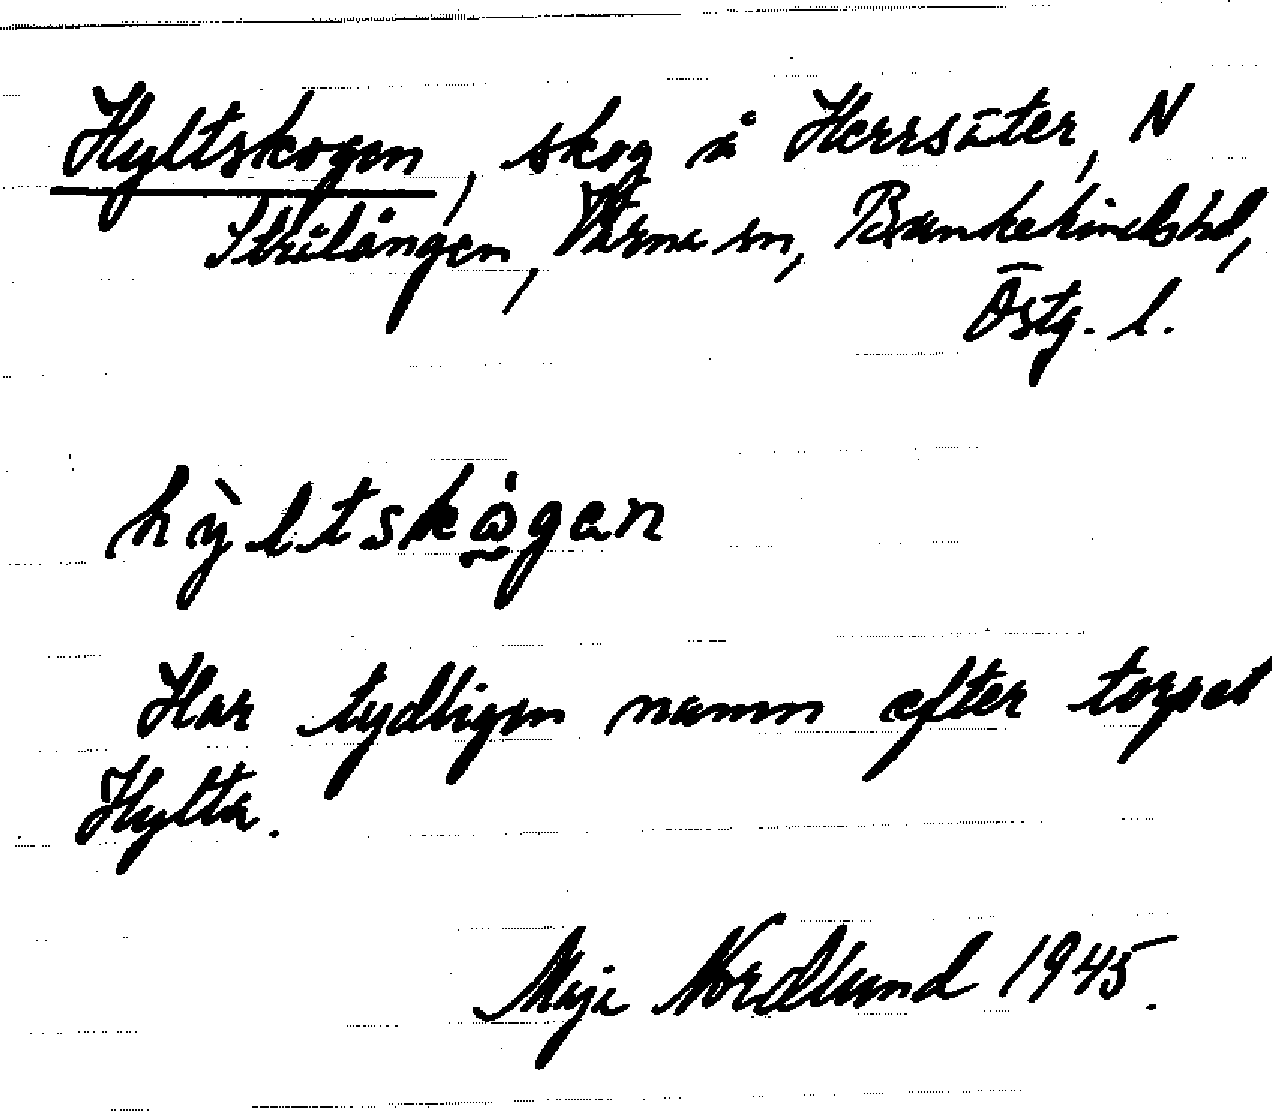 Hyltskogen, skog å Herrsäter, N
Strålången, Värna sn, Bankekinds hd,
Östg. l.
hỳltskǫ̇gan
Har tydligen namn efter torpet
Hylta.
Maja Nordlund 1945.